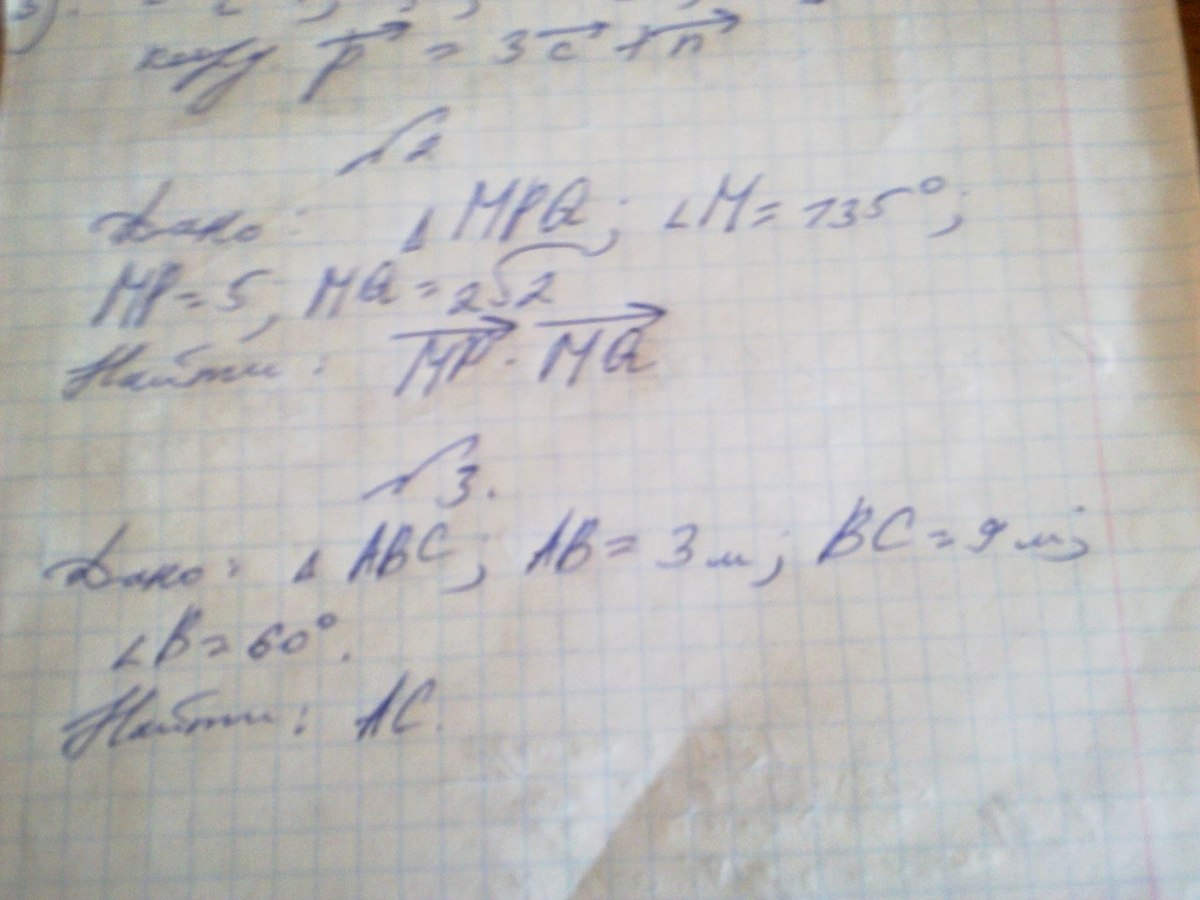 коорд. p = 3c + n
№2
Дано: Δ MPQ; ∠M = 135°;
MP = 5, MQ = 2√2
Найти: MP · MQ
№3.
Дано: Δ ABC; AB = 3 м; BC = 9 м;
∠B = 60°.
Найти: AC.